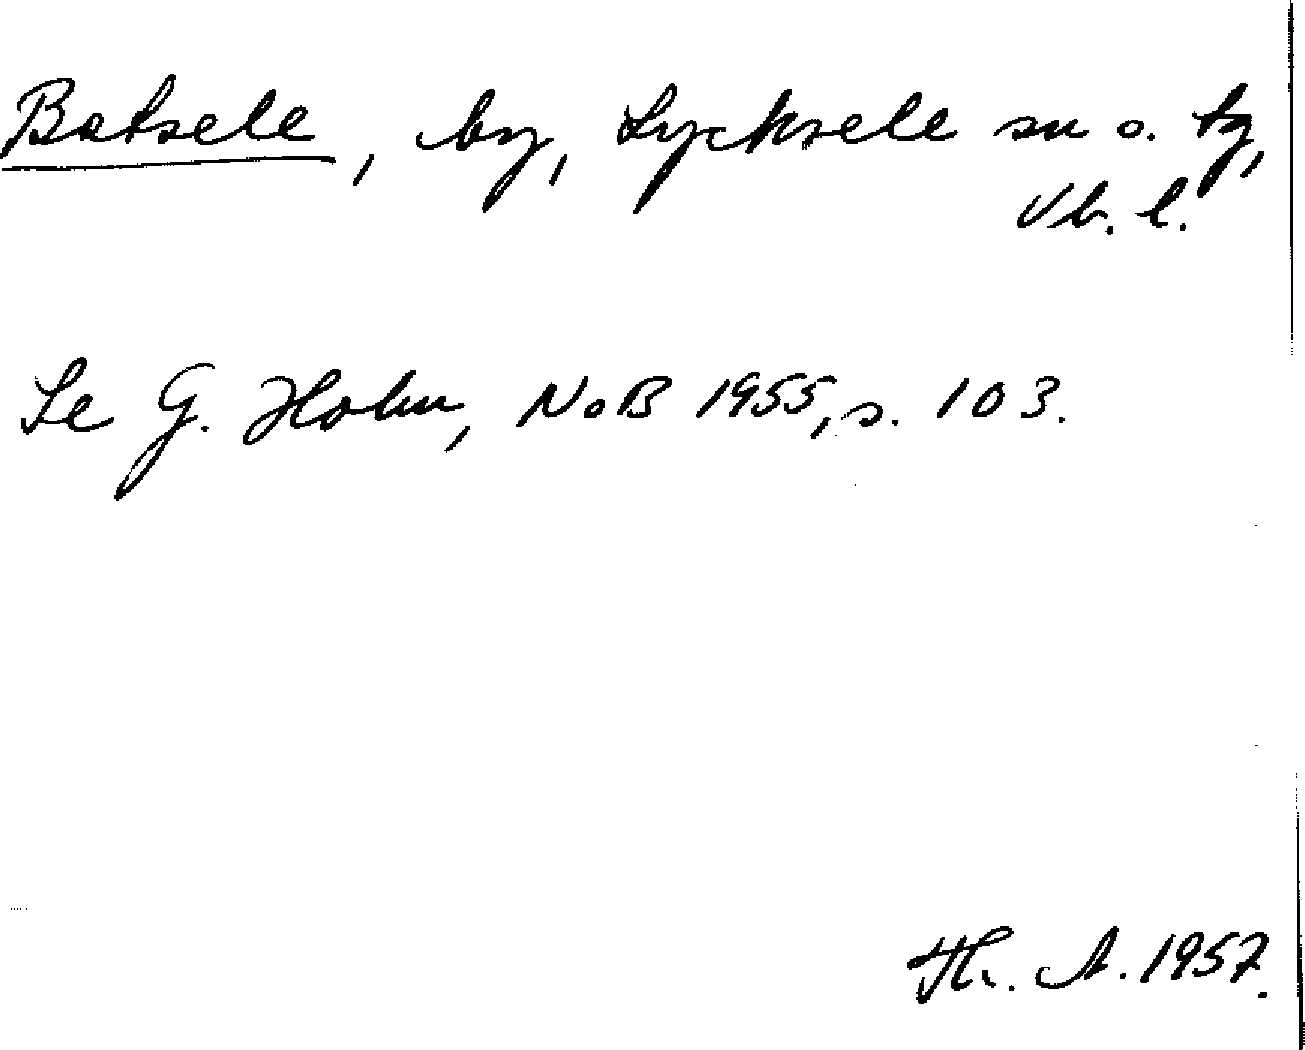 Batsele, by, Lycksele sn o. tg,
Vb. l.
Se G. Holm, NoB 1955, s. 103.
Th. A. 1957.